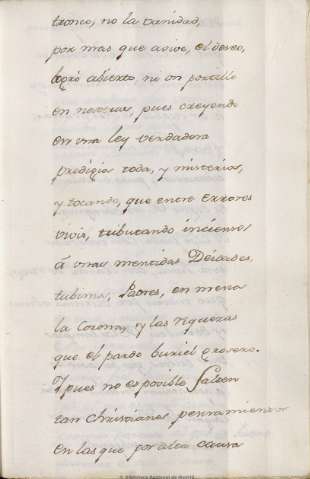 tronco, no la vanidad,
por mas que avive, el deseo,
abierto ni un portillo
en nosotras, pues creyendo
en una ley verdadera
prodigios toda, y misterios,
y tocando, que entre errores
vivis, tributando inciensos
á unas mentidas Deidades,
tubimos, Padres, en menos
la Corona, y las riquezas
que el pardo buriel grosero.
Y pues no es posible falten
tan christianos pensamientos
en las que por alta causa
© Biblioteca Nacional de España